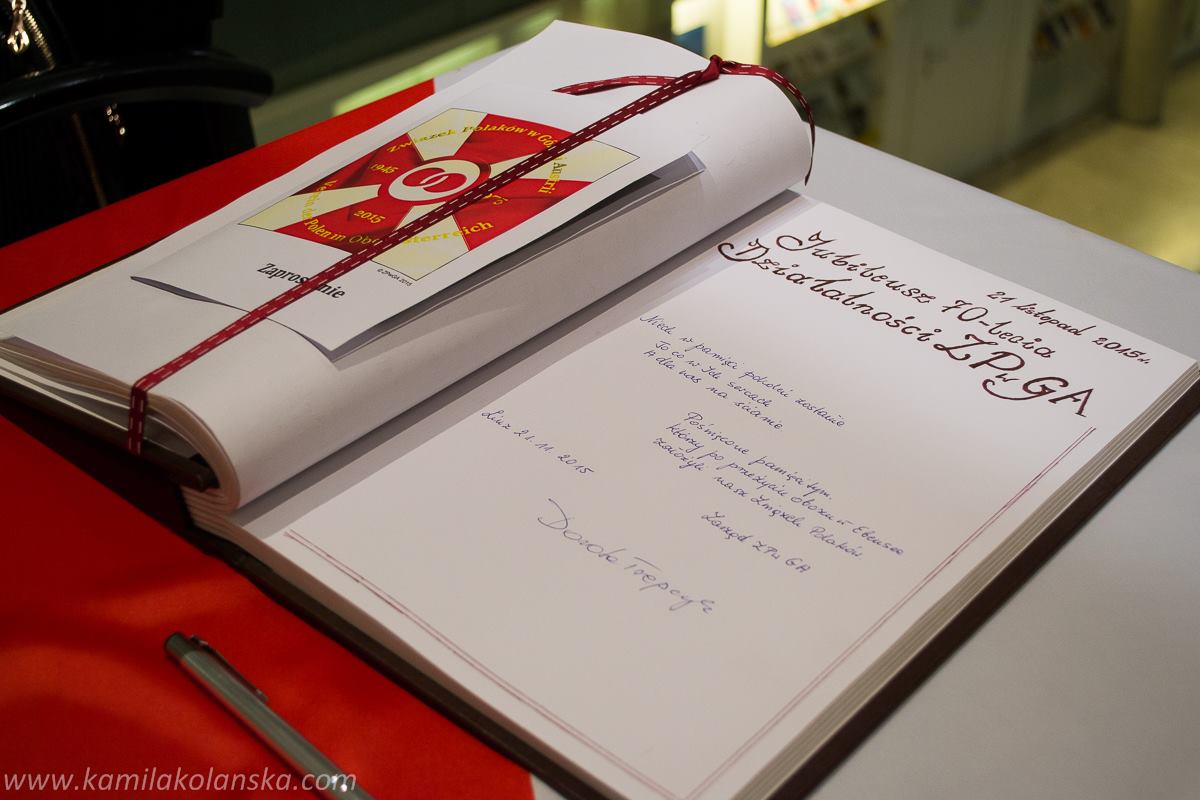 Związek Polaków w Górnej Austrii
1945
1975
2015
Verein der Polen in Oberösterreich
© ZPwGA 2015
Zaproszenie
21 listopad 2015r.
Jubileusz 70-lecia
Działalności ZPwGA
Niech w pamięci pokoleń zostanie
To co w Ich sercach
A dla nas na ścianie
Poświęcone pamięci tym,
którzy po przeżyciu obozu w Ebensee
założyli nasz Związek Polaków.
Zarząd ZPwGA
Linz 21.11.2015
Dorota Trepczyk
www.kamilakolanska.com